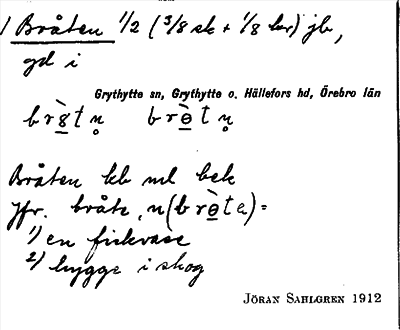 1 Bråten 1/2 (3/8 sk + 1/8 kr) jb,
gd i
Grythytte sn, Grythytte o. Hällefors hd, Örebro län
Bråten kb ml bek
Jfr. bråte, n
1) en
2) hygge i skog
JÖRAN SAHLGREN 1912